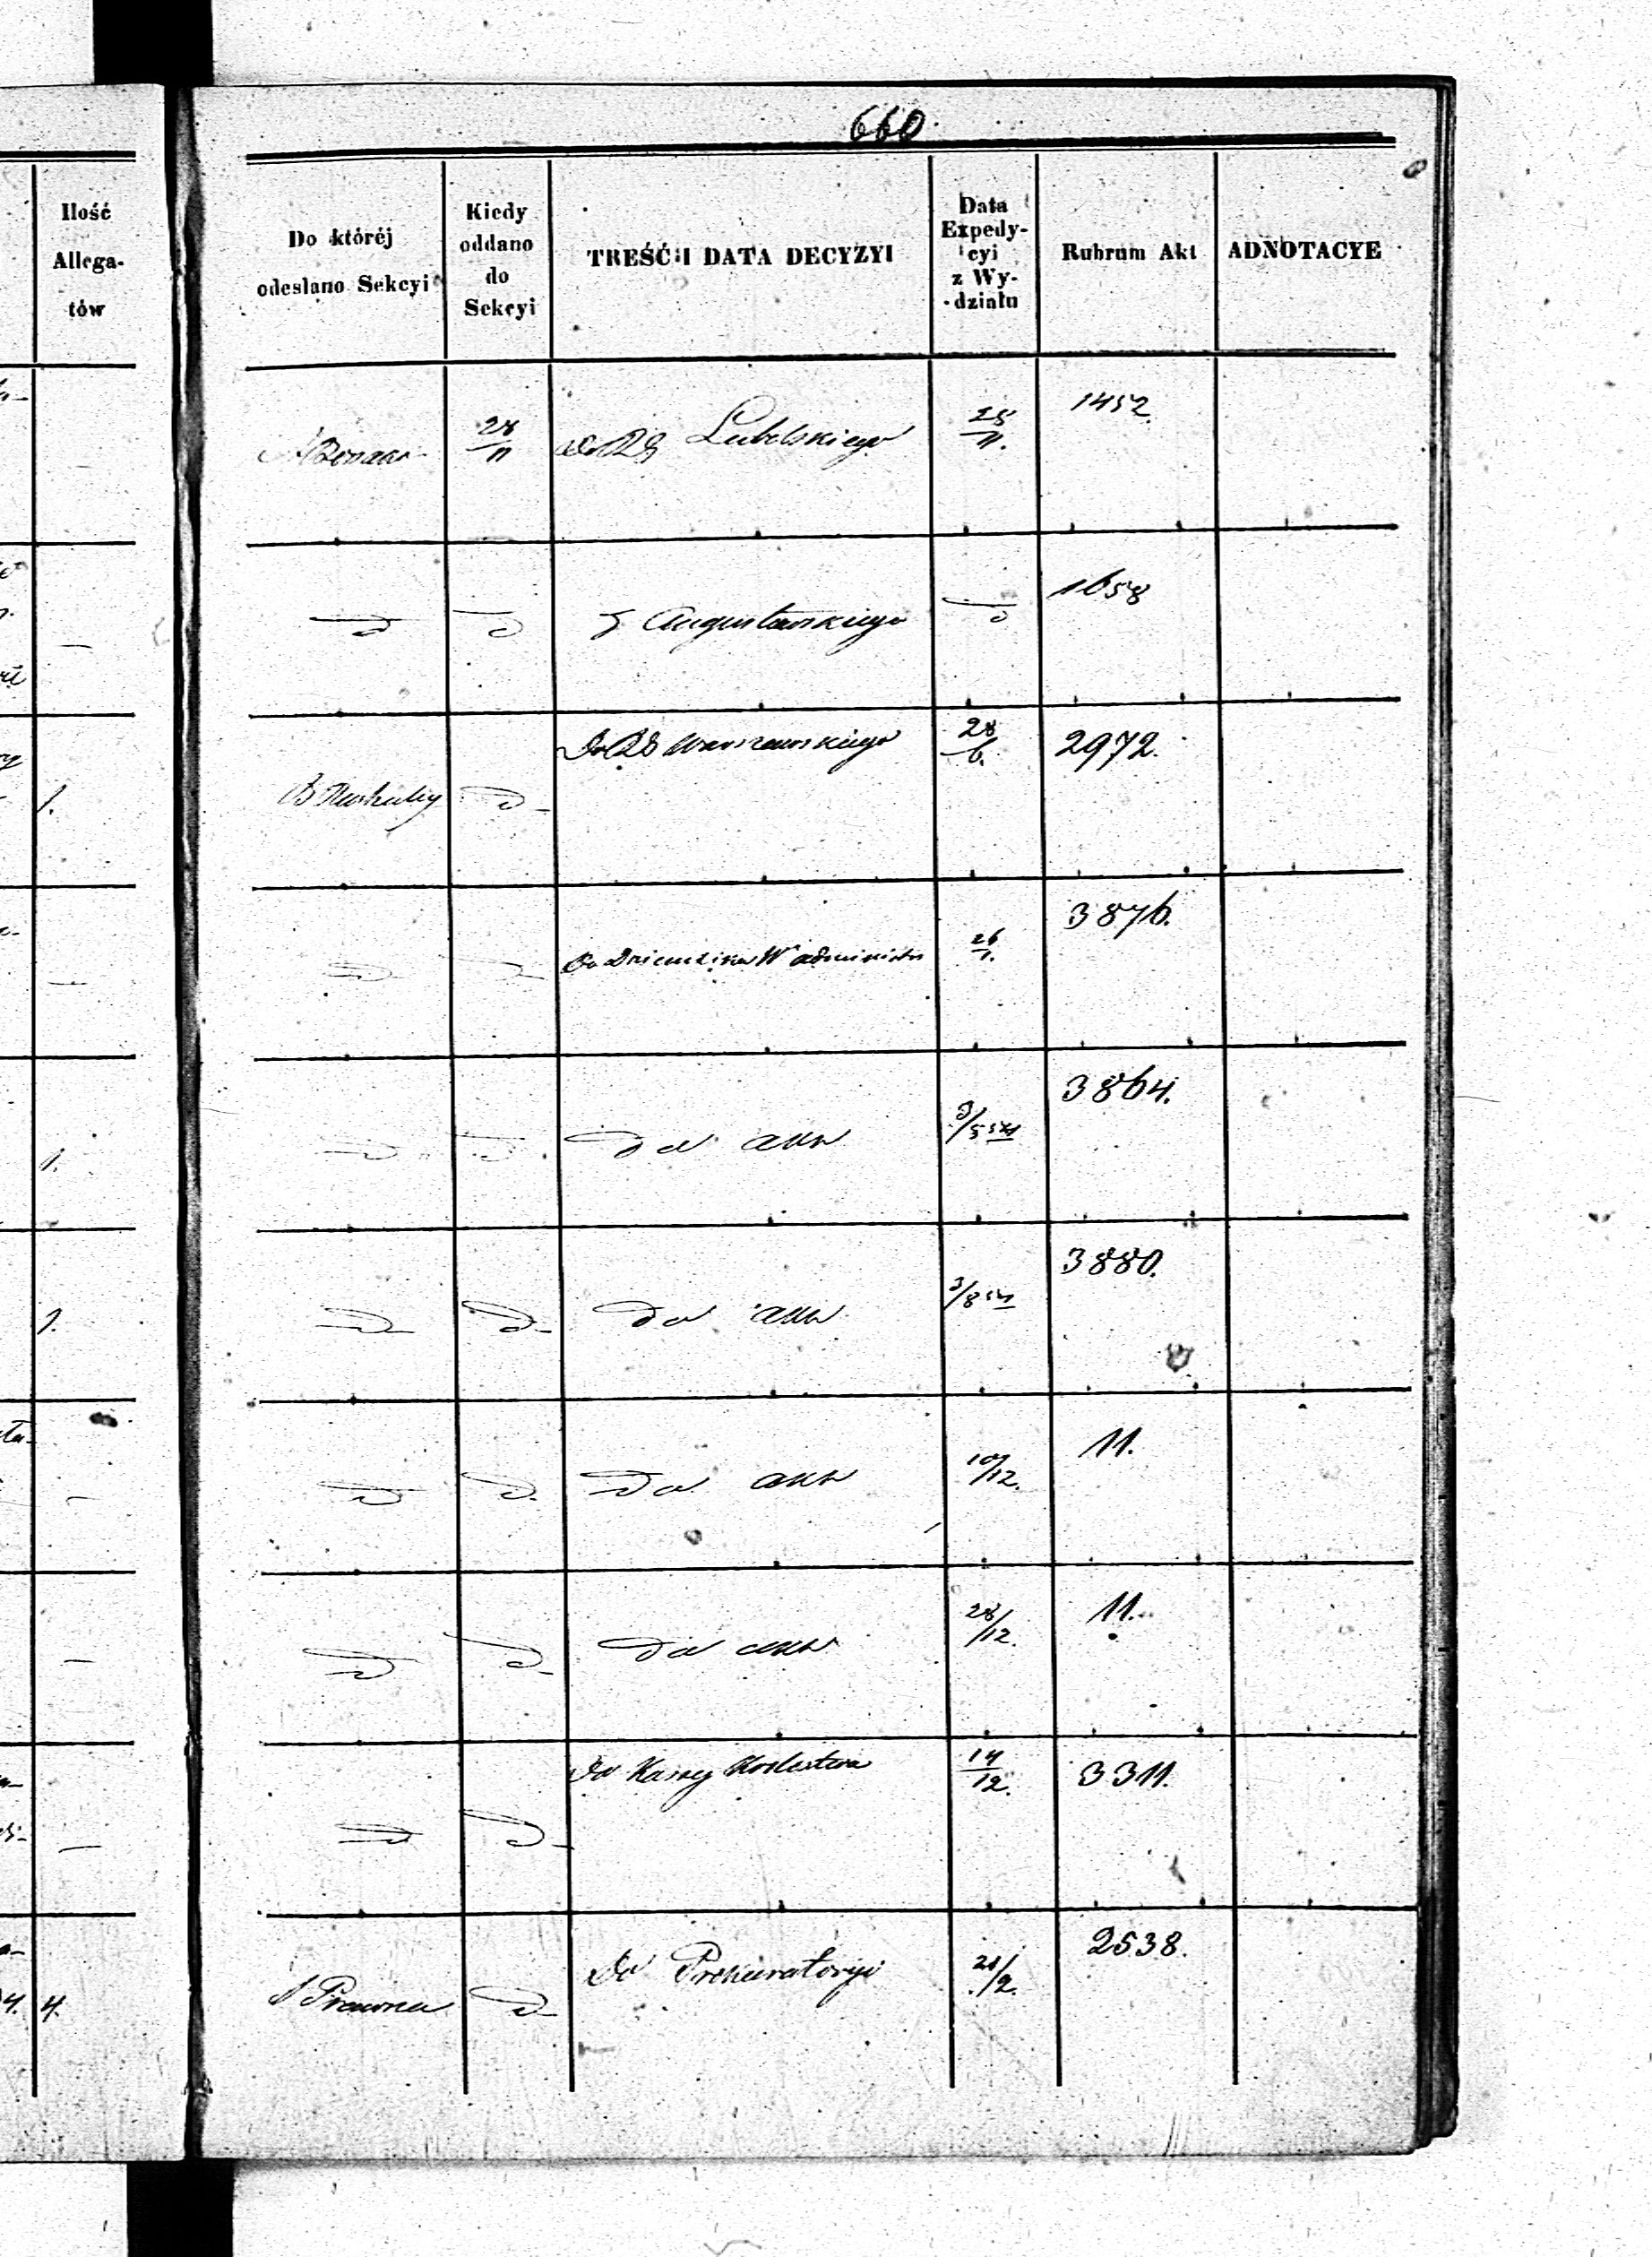 660
Ilość
Allega-
tów
Do któréj
odesłano Sekcyi
Kiedy
oddano
do
Sekcyi
TREŚĆ I DATA DECYZYI
Data
Expedy-
cyi
z Wy-
działu
Rubrum Akt
ADNOTACYE
28/11
Lubelskiego
28/11.
1452.
Augustowskiego
1658
1.
Do RG Warszawskiego
28/6.
2972.
26/1.
3876.
1.
do akt
3864.
1.
do akt
3880.
do akt
10/12.
11.
do akt
28/12.
11.
Do Kassy Królestwa
14/12.
3311.
4.
S Prawna
Do Prokuratoryi
21/2.
2538.